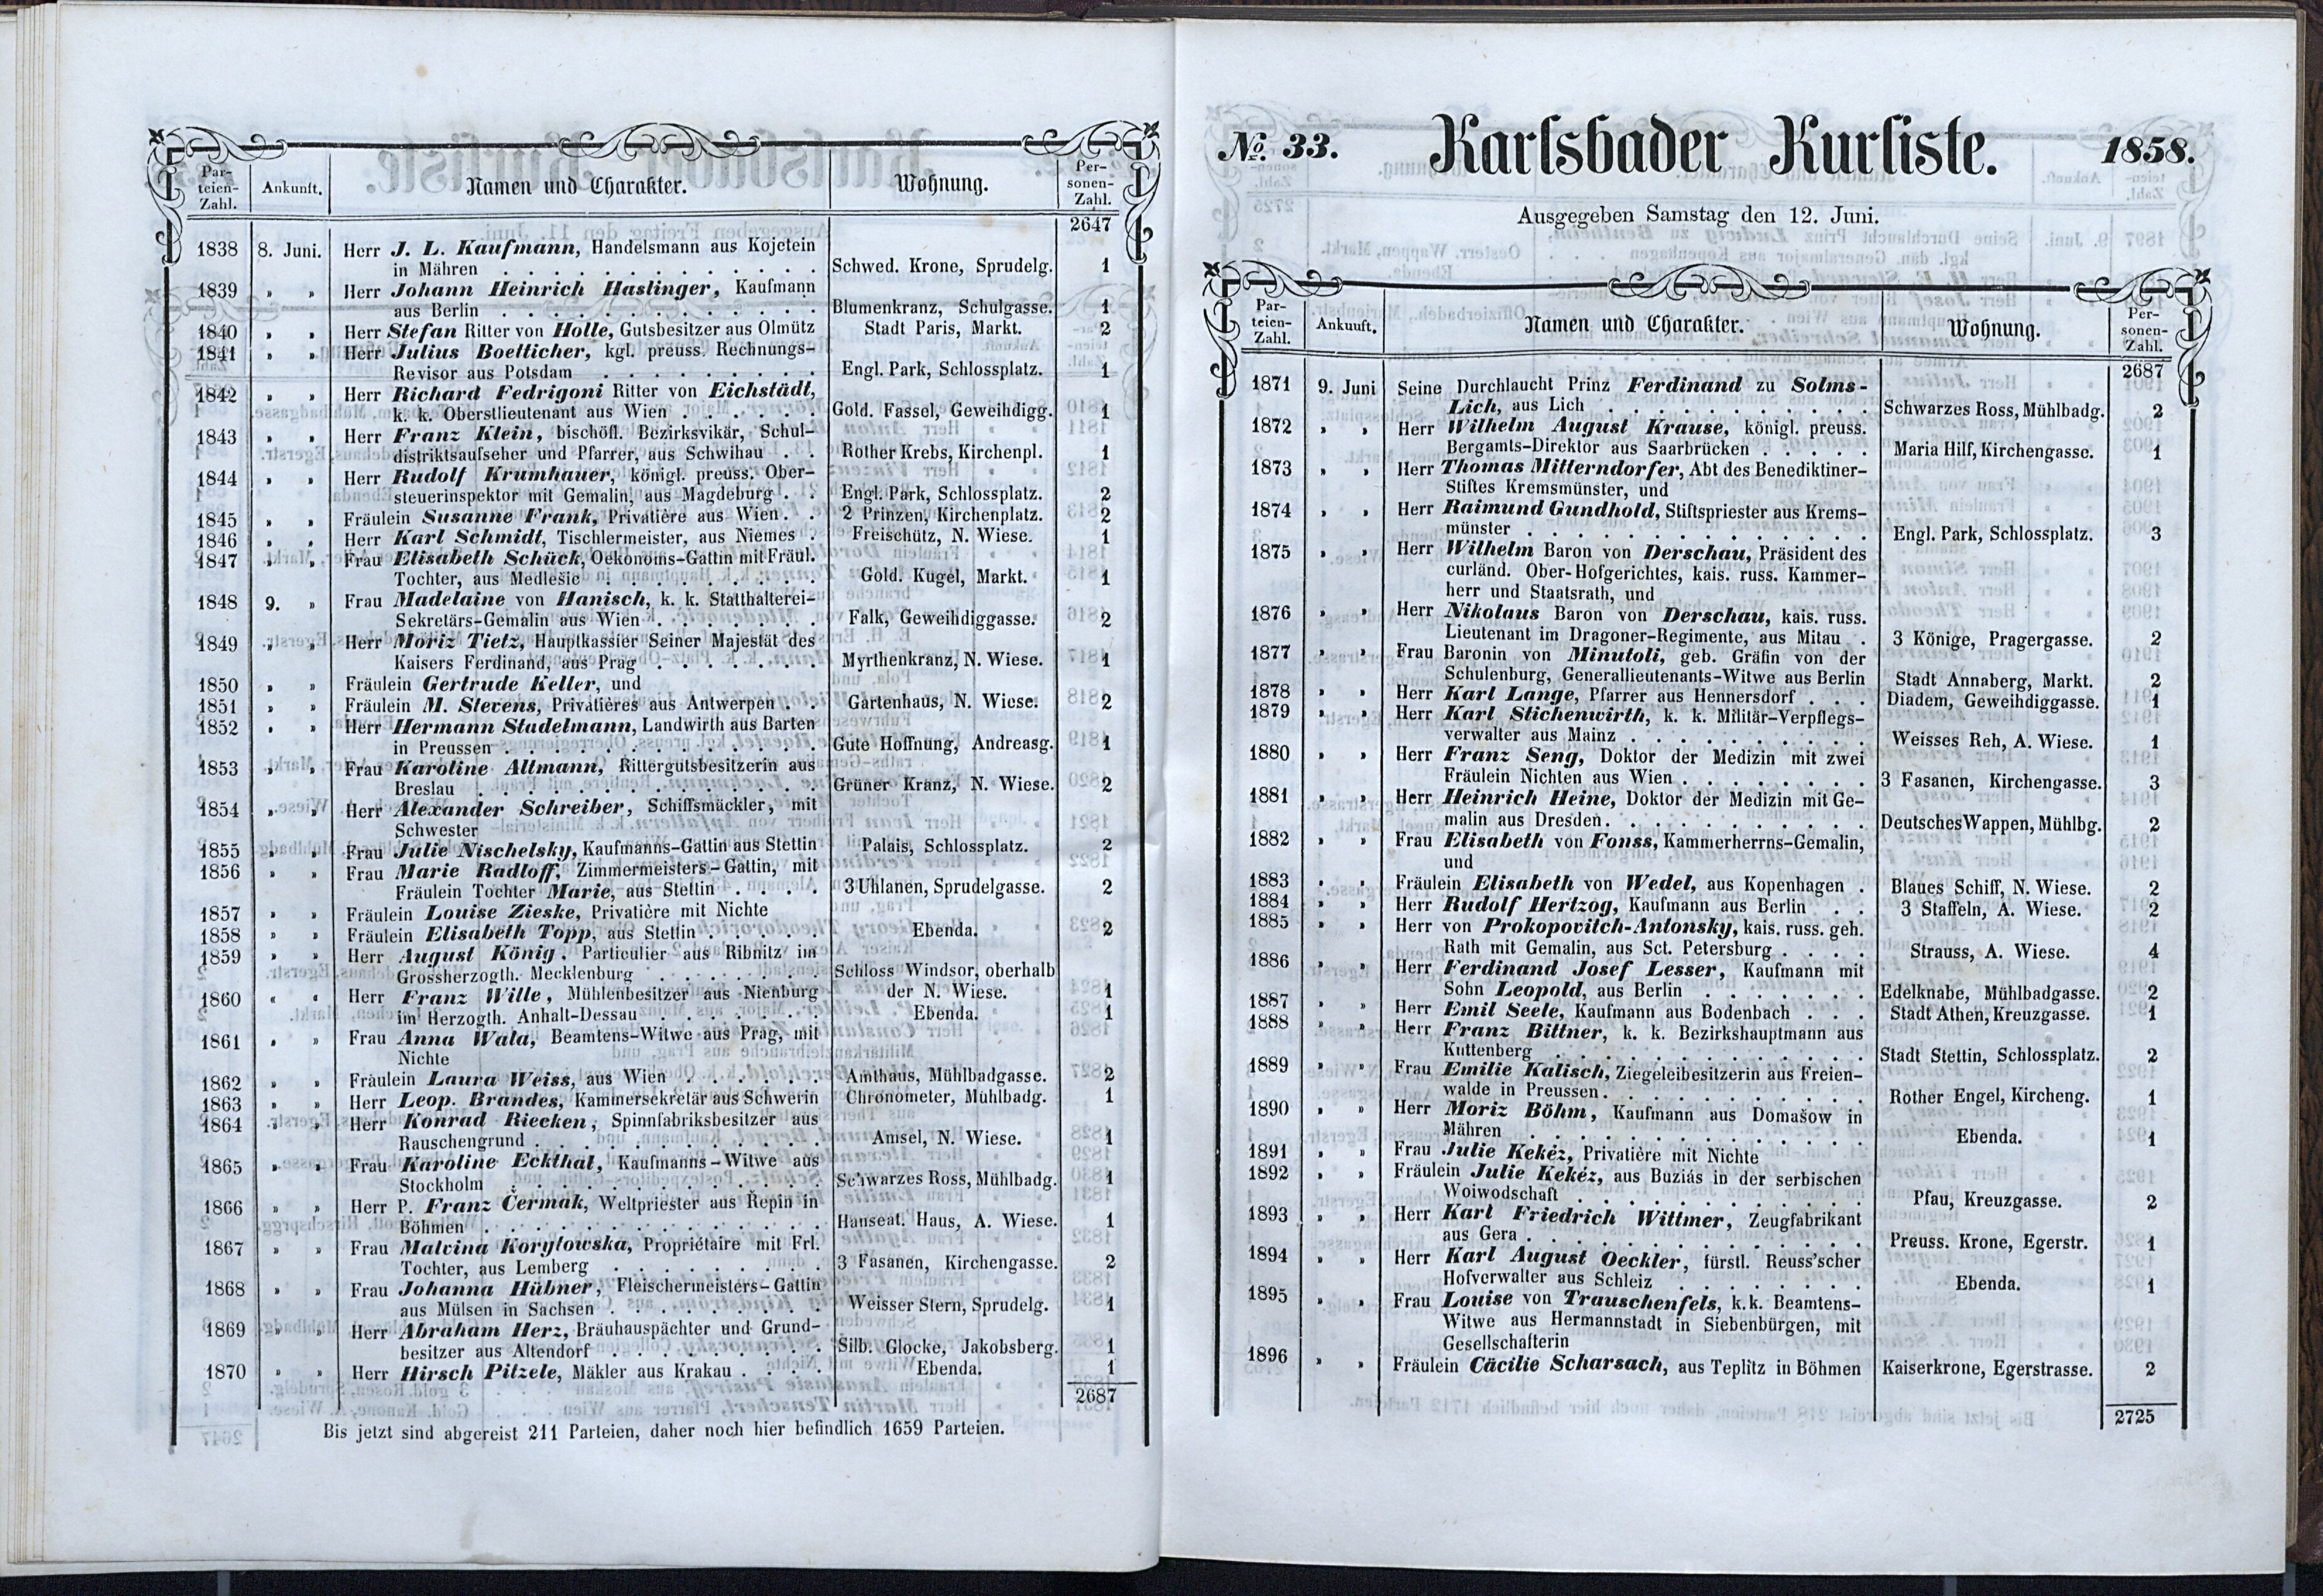 Par-
teien-
Zahl.
Ankunft.
Namen und Charakter.
Wohnung.
Per-
sonen-
Zahl.
2647
1838 8. Juni. Herr J. L. Kaufmann, Handelsmann aus Kojetein
in Mähren . . . Schwed. Krone, Sprudelg. 1
1839 » » Herr Johann Heinrich Haslinger, Kaufmann
aus Berlin . . . Blumenkranz, Schulgasse. 1
1840 » » Herr Stefan Ritter von Holle, Gutsbesitzer aus Olmütz Stadt Paris, Markt. 2
1841 » » Herr Julius Boetticher, kgl. preuss. Rechnungs-
Revisor aus Potsdam . . . Engl. Park, Schlossplatz. 1
1842 » » Herr Richard Fedrigoni Ritter von Eichstädt,
k. k. Oberstlieutenant aus Wien . . . Gold. Fassel, Geweihdigg. 1
1843 » » Herr Franz Klein, bischöfl. Bezirksvikär, Schul-
distriktsaufseher und Pfarrer, aus Schwihau . . Rother Krebs, Kirchenpl. 1
1844 » » Herr Rudolf Krumhauer, königl. preuss. Ober-
steuerinspektor mit Gemalin, aus Magdeburg . . Engl. Park, Schlossplatz. 2
1845 » » Fräulein Susanne Frank, Privatière aus Wien . . 2 Prinzen, Kirchenplatz. 2
1846 » » Herr Karl Schmidt, Tischlermeister, aus Niemes Freischütz, N. Wiese. 1
1847 » » Frau Elisabeth Schück, Oekonoms-Gattin mit Fräul.
Tochter, aus Medlesic . . . Gold. Kugel, Markt. 1
1848 9. » Frau Madelaine von Hanisch, k. k. Statthalterei-
Sekretärs-Gemalin aus Wien . . . Falk, Geweihdiggasse. 2
1849 » » Herr Moriz Tietz, Hauptkassier Seiner Majestät des
Kaisers Ferdinand, aus Prag . . . Myrthenkranz, N. Wiese. 1
1850 » » Fräulein Gertrude Keller, und
1851 » » Fräulein M. Stevens, Privatières aus Antwerpen . . Gartenhaus, N. Wiese. 2
1852 » » Herr Hermann Studelmann, Landwirth aus Barten
in Preussen . . . Gute Hoffnung, Andreasg. 1
1853 » » Frau Karoline Altmann, Rittergutsbesitzerin aus
Breslau . . . Grüner Kranz, N. Wiese. 2
1854 » » Herr Alexander Schreiber, Schiffsmäckler, mit
Schwester
1855 » » Frau Julie Nischelsky, Kaufmanns-Gattin aus Stettin Palais, Schlossplatz. 2
1856 » » Frau Marie Radloff, Zimmermeisters-Gattin, mit
Fräulein Tochter Marie, aus Stettin . . . . 3 Uhlanen, Sprudelgasse. 2
1857 » » Fräulein Louise Zieske, Privatière mit Nichte
1858 » » Fräulein Elisabeth Topp, aus Stettin . . . Ebenda. 2
1859 » » Herr August König, Particulier aus Ribnitz im
Grossherzogth. Mecklenburg . . . Schloss Windsor, oberhalb
der N. Wiese. 1
1860 « « Herr Franz Wille, Mühlenbesitzer aus Nienburg
im Herzogth. Anhalt-Dessau . . . Ebenda. 1
1861 » » Frau Anna Wala, Beamtens-Witwe aus Prag, mit
Nichte
1862 » » Fräulein Laura Weiss, aus Wien . . . Amthaus, Mühlbadgasse. 2
1863 » » Herr Leop. Brandes, Kammersekretär aus Schwerin Chronometer, Mühlbadg. 1
1864 » » Herr Konrad Riecken, Spinnfabriksbesitzer aus
Rauschengrund . . . Amsel, N. Wiese. 1
1865 » » Frau Karoline Eckthal, Kaufmanns-Witwe aus
Stockholm . . . Schwarzes Ross, Mühlbadg. 1
1866 » » Herr P. Franz Čermak, Weltpriester aus Řepin in
Böhmen . . . Hanseat. Haus, A. Wiese. 1
1867 » » Frau Malvina Korytowska, Propriétaire mit Frl.
Tochter, aus Lemberg . . . 3 Fasanen, Kirchengasse. 2
1868 » » Frau Johanna Hübner, Fleischermeisters-Gattin
aus Mülsen in Sachsen . . . Weisser Stern, Sprudelg. 1
1869 » » Herr Abraham Herz, Bräuhauspächter und Grund-
besitzer aus Altendorf . . . Silb. Glocke, Jakobsberg. 1
1870 » » Herr Hirsch Pitzele, Mäkler aus Krakau . . . . Ebenda. 1
2687
Bis jetzt sind abgereist 211 Parteien, daher noch hier befindlich 1659 Parteien.
No. 33. Karlsbader Kurliste. 1858.
Ausgegeben Samstag den 12. Juni.
Par-
teien-
Zahl.
Ankunft.
Namen und Charakter.
Wohnung.
Per-
sonen-
Zahl.
2687
1871 9. Juni Seine Durchlaucht Prinz Ferdinand zu Solms-
Lich, aus Lich . . . Schwarzes Ross, Mühlbadg. 2
1872 » » Herr Wilhelm August Krause, königl. preuss.
Bergamts-Direktor aus Saarbrücken . . . . . Maria Hilf, Kirchengasse. 1
1873 » » Herr Thomas Mitterndorfer, Abt des Benediktiner-
Stiftes Kremsmünster, und
1874 » » Herr Raimund Gundhold, Stiftspriester aus Krems-
münster . . . Engl. Park, Schlossplatz. 3
1875 » » Herr Wilhelm Baron von Derschau, Präsident des
curländ. Ober-Hofgerichtes, kais. russ. Kammer-
herr und Staatsrath, und
1876 » » Herr Nikolaus Baron von Derschau, kais. russ.
Lieutenant im Dragoner-Regimente, aus Mitau . 3 Könige, Pragergasse. 2
1877 » » Frau Baronin von Minutoli, geb. Gräfin von der
Schulenburg, Generallieutenants-Witwe aus Berlin Stadt Annaberg, Markt. 2
1878 » » Herr Karl Lange, Pfarrer aus Hennersdorf . . . Diadem, Geweihdiggasse. 1
1879 » » Herr Karl Stichenwirth, k. k. Militär-Verpflegs-
verwalter aus Mainz . . . Weisses Reh, A. Wiese. 1
1880 » » Herr Franz Seng, Doktor der Medizin mit zwei
Fräulein Nichten aus Wien . . . 3 Fasanen, Kirchengasse. 3
1881 » » Herr Heinrich Heine, Doktor der Medizin mit Ge-
malin aus Dresden . . . Deutsches Wappen, Mühlbg. 2
1882 » » Frau Elisabeth von Fonss, Kammerherrns-Gemalin,
und
1883 » » Fräulein Elisabeth von Wedel, aus Kopenhagen . Blaues Schiff, N. Wiese. 2
1884 » » Herr Rudolf Hertzog, Kaufmann aus Berlin . . 3 Staffeln, A. Wiese. 2
1885 » » Herr von Prokopovitch-Antonsky, kais. russ. geh.
Rath mit Gemalin, aus Sct. Petersburg . . . . Strauss, A. Wiese. 4
1886 » » Herr Ferdinand Josef Lesser, Kaufmann mit
Sohn Leopold, aus Berlin . . . Edelknabe, Mühlbadgasse. 2
1887 » » Herr Emil Seele, Kaufmann aus Bodenbach . . . Stadt Athen, Kreuzgasse. 1
1888 » » Herr Franz Bittner, k. k. Bezirkshauptmann aus
Kuttenberg . . . Stadt Stettin, Schlossplatz. 2
1889 » » Frau Emilie Kalisch, Ziegeleibesitzerin aus Freien-
walde in Preussen . . . Rother Engel, Kircheng. 1
1890 » » Herr Moriz Böhm, Kaufmann aus Domašow in
Mähren . . . Ebenda. 1
1891 » » Frau Julie Kekéz, Privatière mit Nichte
1892 » » Fräulein Julie Kekéz, aus Buziás in der serbischen
Woiwodschaft . . . Pfau, Kreuzgasse. 2
1893 » » Herr Karl Friedrich Wittmer, Zeugfabrikant
aus Gera . . . Preuss. Krone, Egerstr. 1
1894 » » Herr Karl August Oeckler, fürstl. Reuss'scher
Hofverwalter aus Schleiz . . . Ebenda. 1
1895 » » Frau Louise von Trauschenfels, k. k. Beamtens-
Witwe aus Hermannstadt in Siebenbürgen, mit
Gesellschafterin
1896 » » Fräulein Cäcilie Scharsach, aus Teplitz in Böhmen Kaiserkrone, Egerstrasse. 2
2725